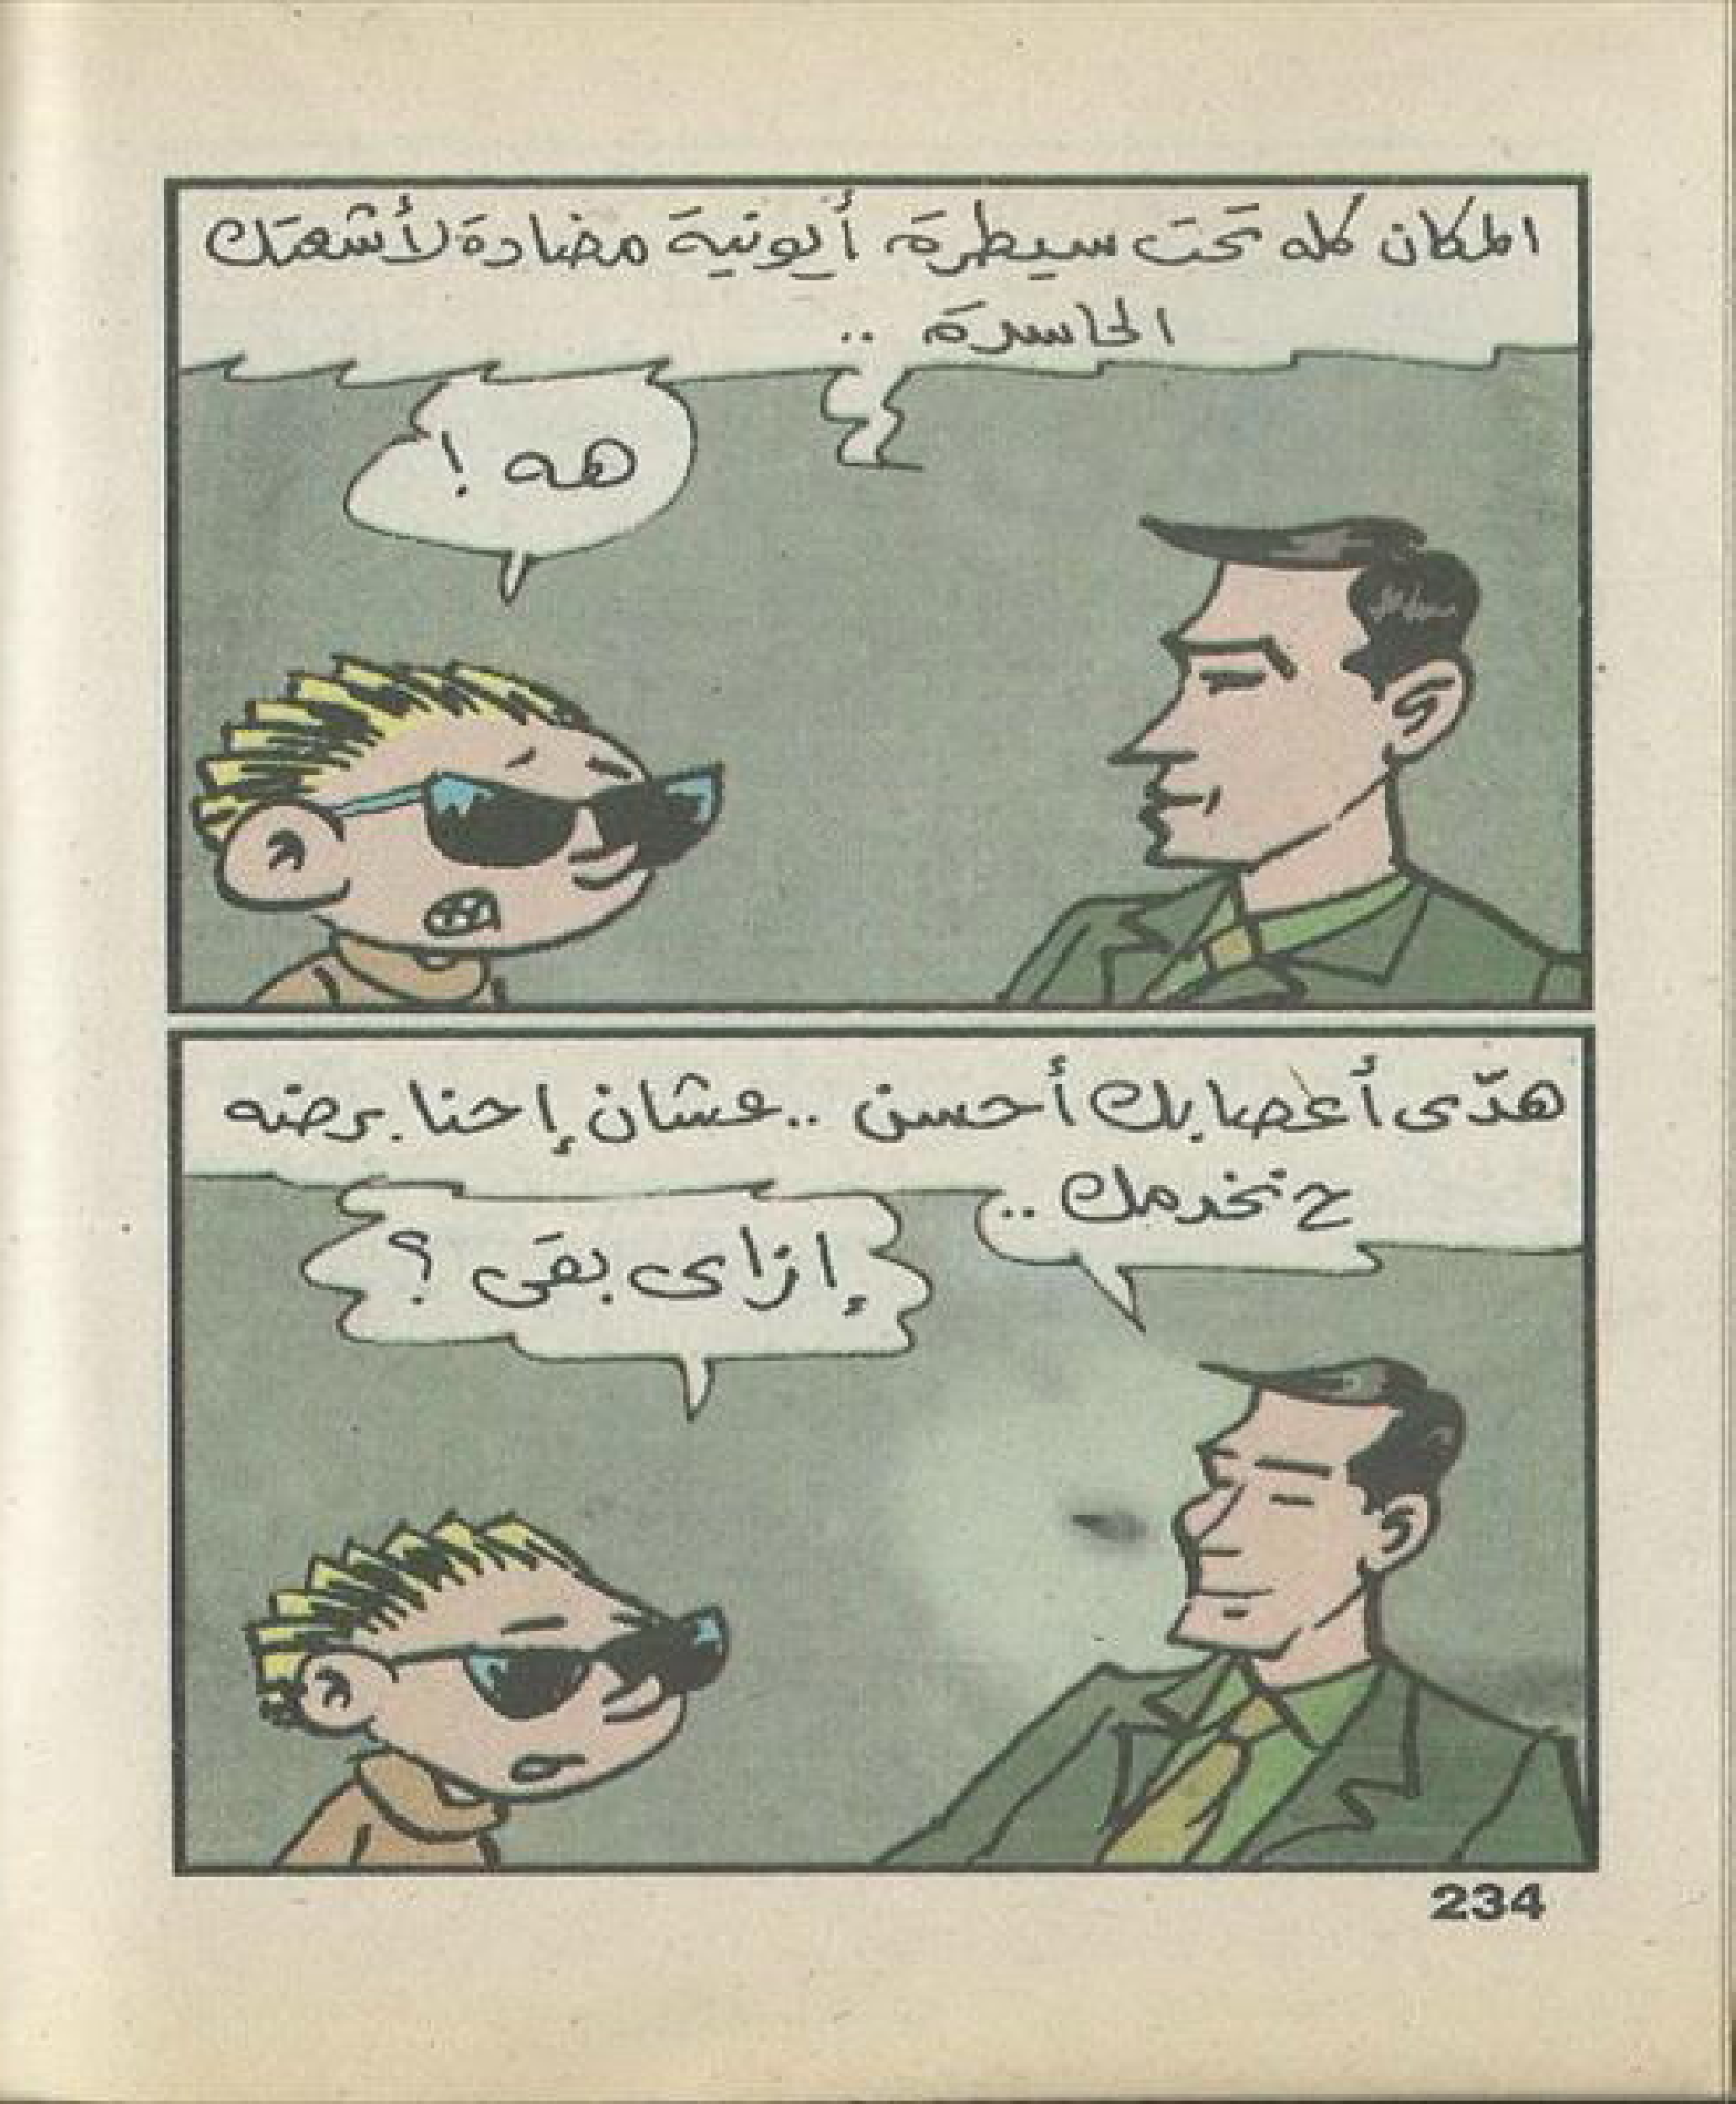 المكان كله تحت سيطرة أيونية مضادة لأشعتك
الحاسدة ..
هه !
هدّى أعصابك أحسن .. عشان إحنا برضه
ح نخدمك ..
إزاى بقى ؟
234